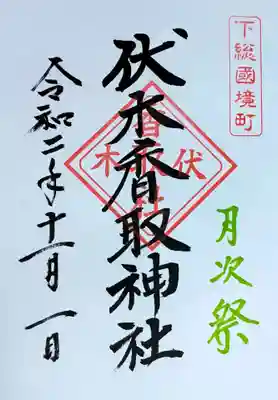 下総國境町
月次祭
伏木香取神社
令和二年十一月一日
伏木